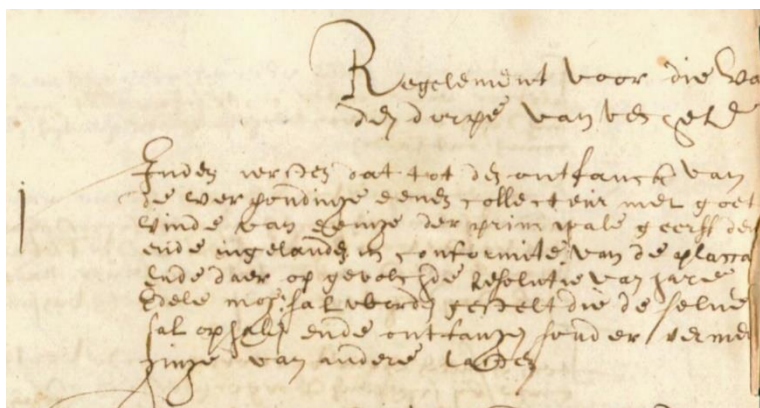 Regelement voor die va
den dorpe van
Inden iersten dat tot den ontfanck van
de verpondinge eenen collecteur met goet
vinde van eenige der principale geerfd
ende ingelanden in conformite van de placca
ende daer op gevolchde Resolutie van haere
Edele mog: sal worden gestelt die de selve
sal ophalen ende ontfangen sonder vermen
ginge van andere lasten